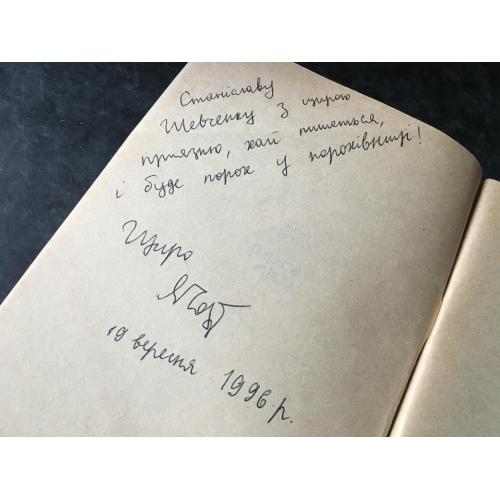 Станіславу
Шевченку з щирою
приязню, хай пишеться,
і буде порох у порохівниці!
Щиро
19 вересня 1996 р.